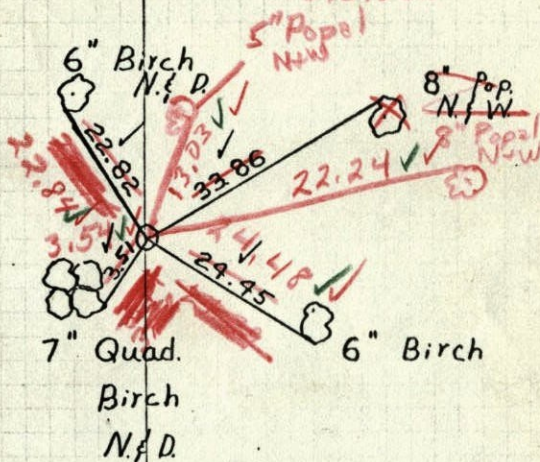 5" Popel
N+W
6" Birch
N. & D.
8" Pop.
N. & W.
8" Popel
N+W
22.82
22.84
13.03
33.86
22.24
3.54
3.51
24.48
24.45
7" Quad.
Birch
N. & D.
6" Birch